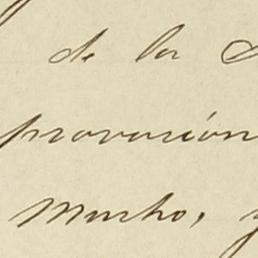 de la
provocación
Mucho, y